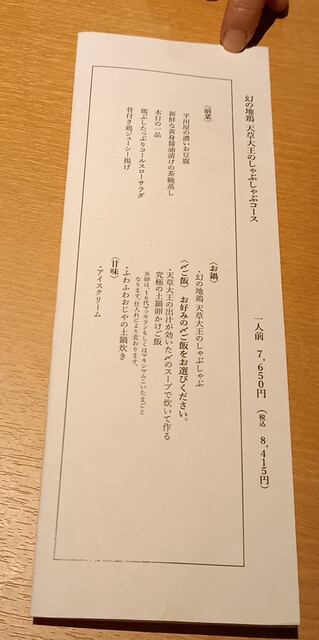 幻の地鶏 天草大王のしゃぶしゃぶコース
一人前 7,650円 (税込 8,415円)
〈前菜〉
平川屋の濃いお豆腐
新鮮な黄身醤油漬けの茶碗蒸し
本日の一品
鶏ぶしたっぷりコールスローサラダ
骨付き鶏ジューシー揚げ
〈お鍋〉
・幻の地鶏 天草大王のしゃぶしゃぶ
〈〆ご飯〉 お好みの〆ご飯をお選びください。
・天草大王の出汁が効いた〆のスープで炊いて作る
究極の土鍋卵かけご飯
※卵は、16代マッカランもしくはマキシマムこいたまごと
なります。仕入れにより変わります。
・ふわふわおじやの土鍋炊き
〈甘味〉
・アイスクリーム